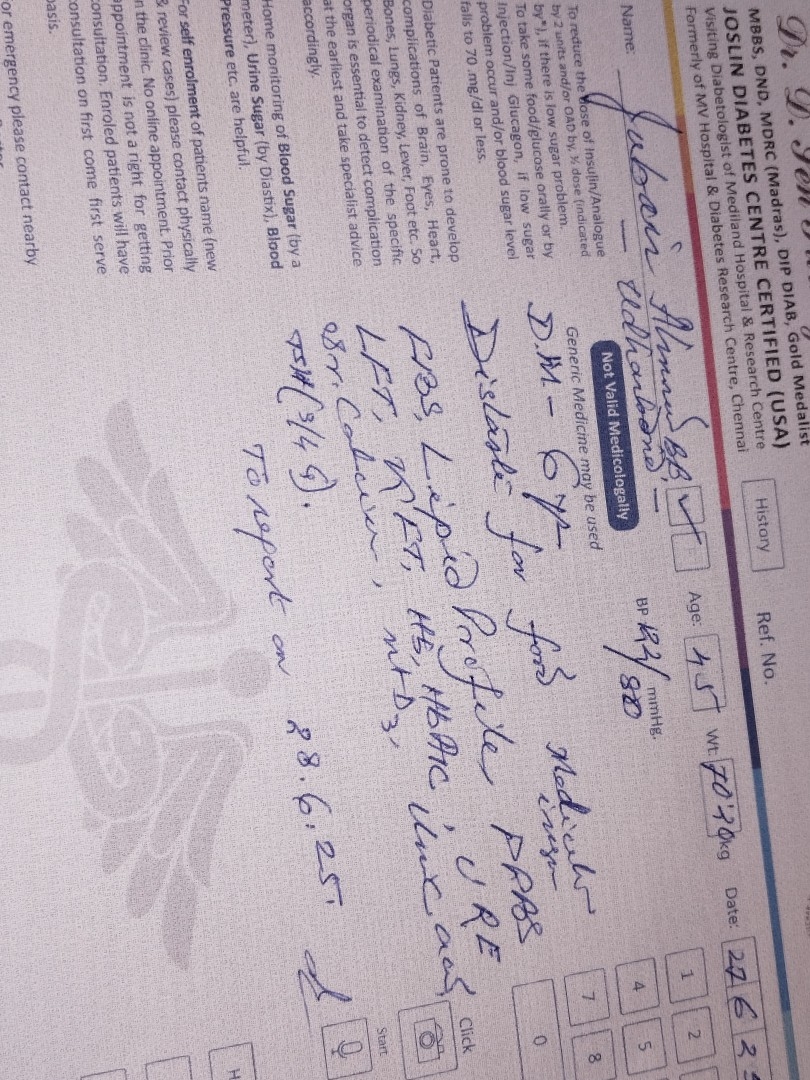 Dr. D.
MBBS, DND, MDRC (Madras), DIP DIAB, Gold Medalist
JOSLIN DIABETES CENTRE CERTIFIED (USA)
Visiting Diabetologist of Mediland Hospital & Research Centre
Formerly of MV Hospital & Diabetes Research Centre, Chennai
History
Ref. No.
Name: Jubair Ahmed
Age: 45 Wt: 70.70kg Date: 27 6 2
Udharbond
Not Valid Medicologally
BP 122/80 mmHg.
1 2
4 5
7 8
0
Click
Start
H
Generic Medicine may be used
To reduce the dose of Insulin/Analogue
by 2 units and/or OAD by, ½ dose (indicated
by*), if there is low sugar problem.
To take some food/glucose orally or by
Injection/Inj Glucagon, if low sugar
problem occur and/or blood sugar level
falls to 70 .mg/dl or less.
Diabetic Patients are prone to develop
complications of Brain, Eyes, Heart,
Bones, Lungs, Kidney, Lever, Foot etc. So
periodical examination of the specific
organ is essential to detect complication
at the earliest and take specialist advice
accordingly.
Home monitoring of Blood Sugar (by a
meter), Urine Sugar (by Diastix), Blood
Pressure etc are helpful.
For self enrolment of patients name (new
& review cases) please contact physically
in the clinic. No online appointment. Prior
appointment is not a right for getting
consultation. Enroled patients will have
consultation on first come first serve
basis.
or emergency please contact nearby
D.M - 6 yr
for food
FBS, Lipid Profile, PPBS
LFT, KFT, Hb, HbA1C, URE
Sr. Calcium, vit D3,
TSH
To report on 28.6.25.